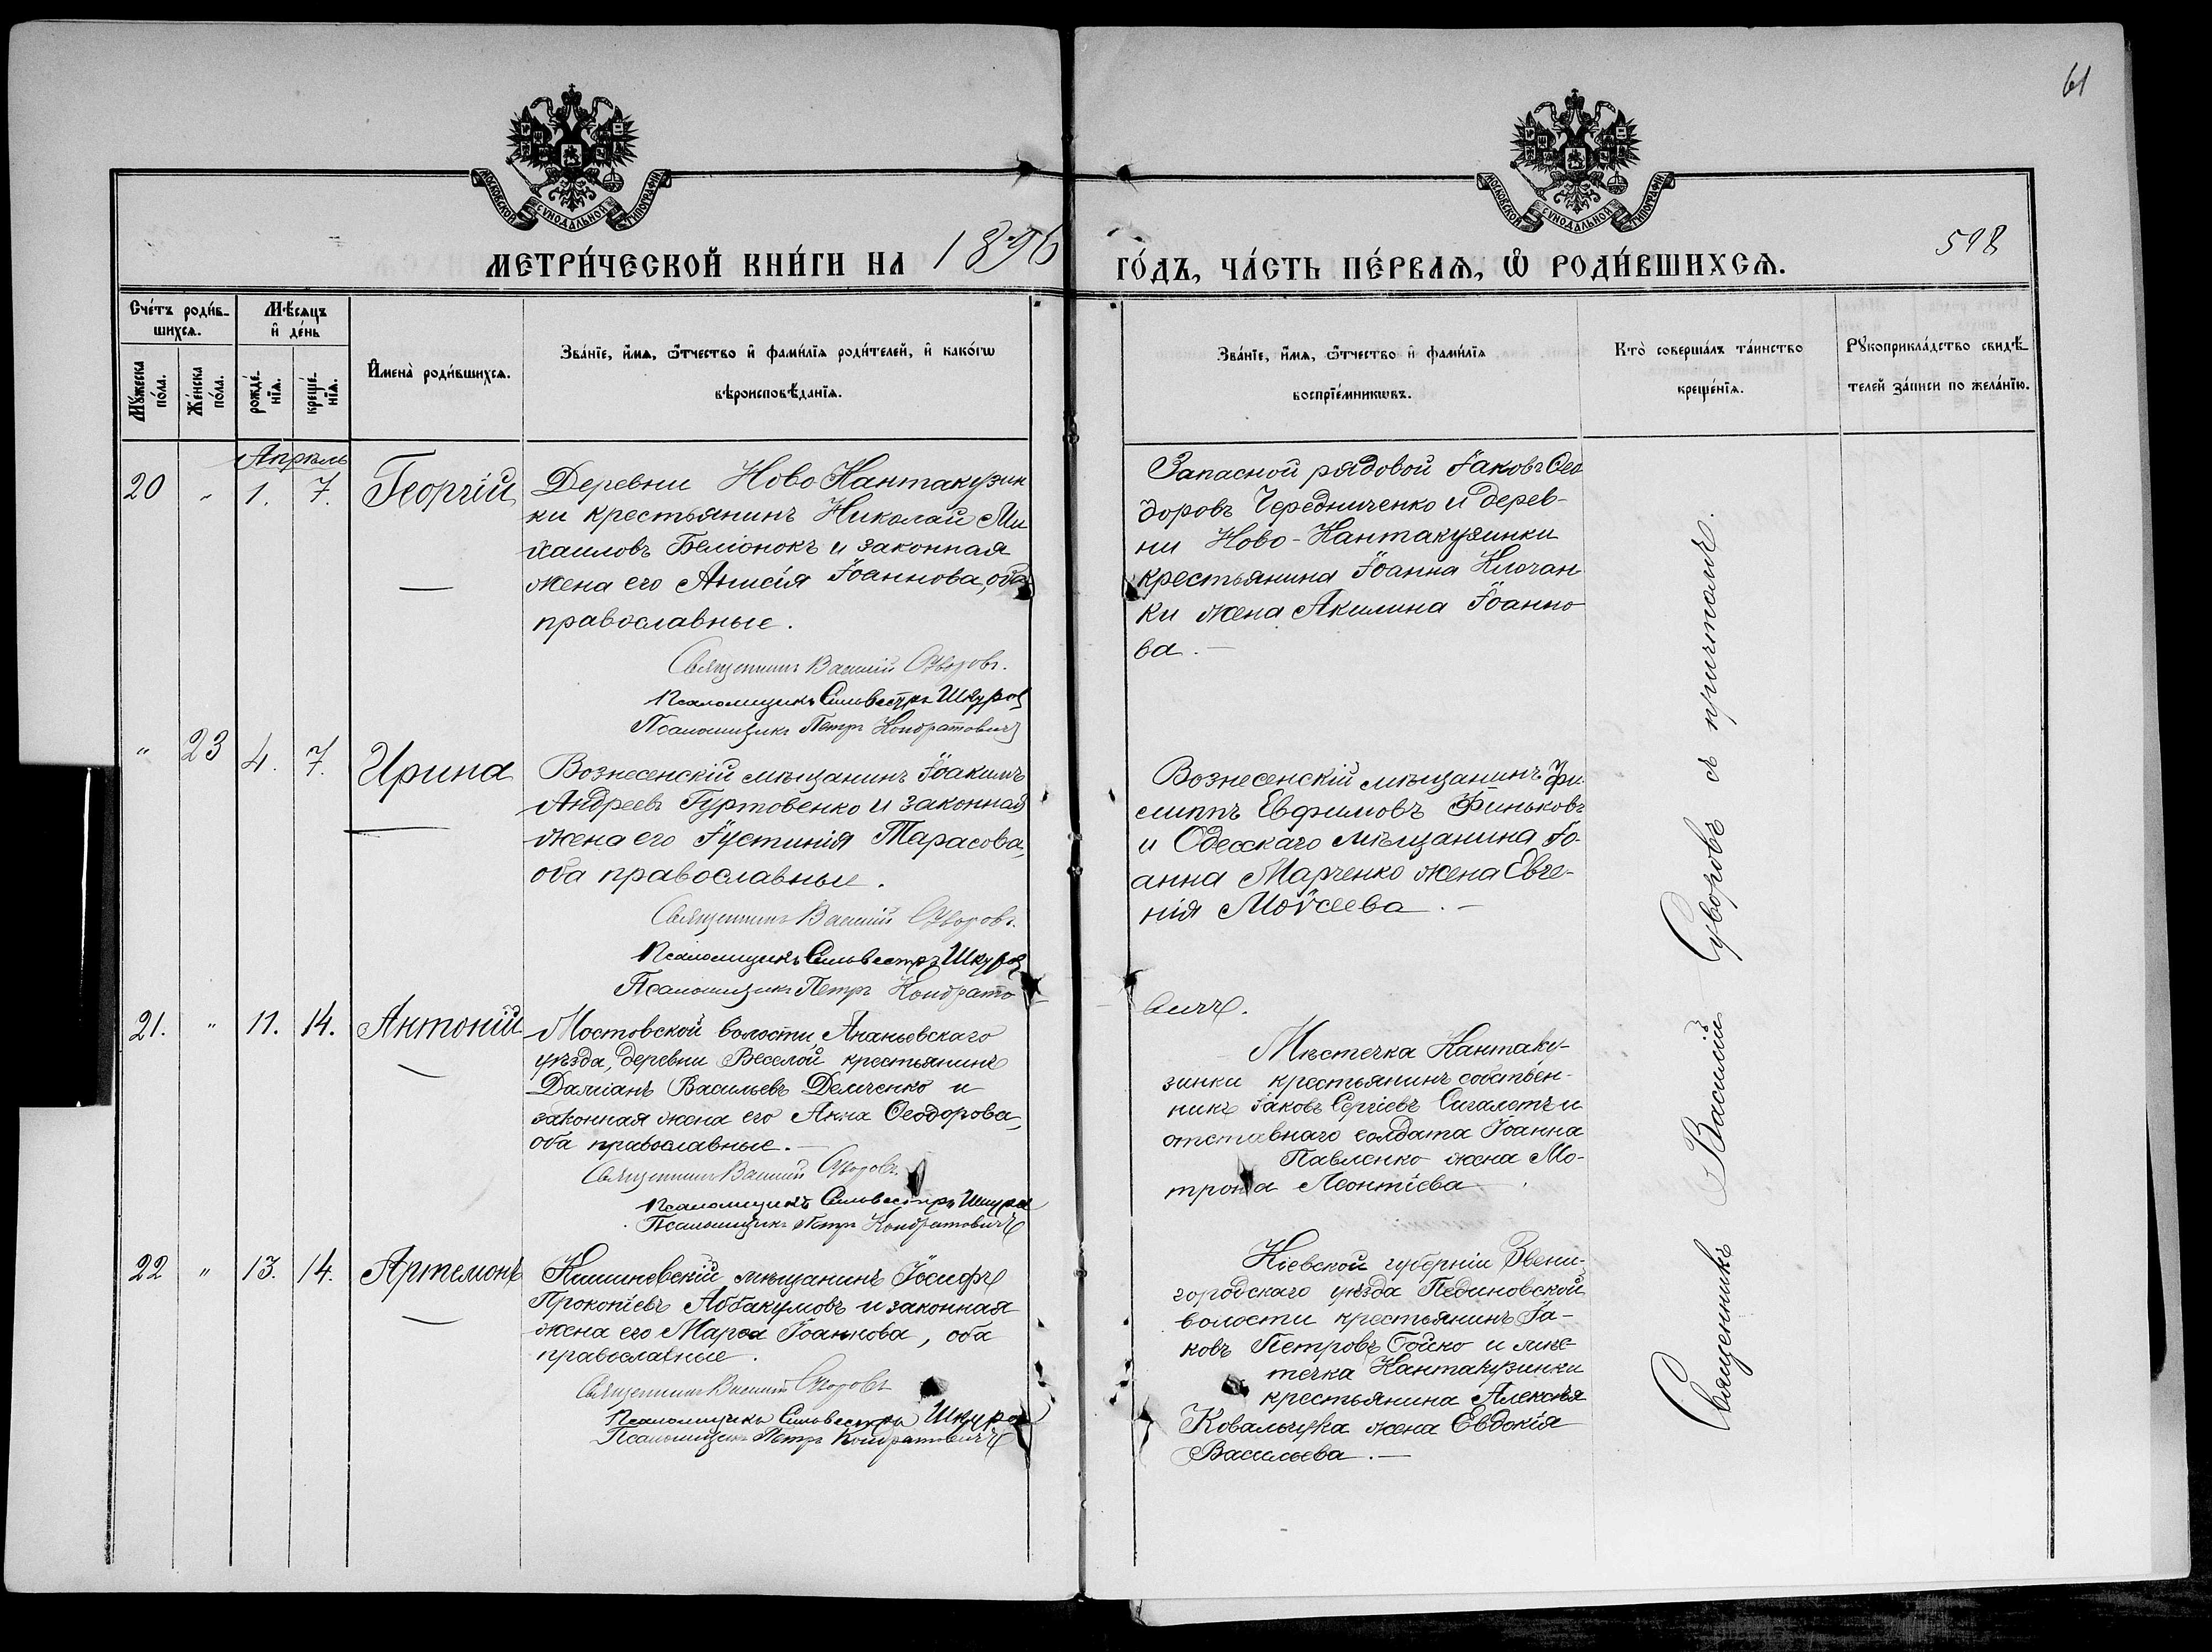 61
МОСКОВСКОЙ СѴНОДАЛЬНОЙ ТИПОГРАФІИ
МОСКОВСКОЙ СѴНОДАЛЬНОЙ ТИПОГРАФІИ
МЕТРИ́ЧЕСКОЙ КНИ́ГИ НА 1896
ГО́ДЪ, ЧА́СТЬ ПЕ́РВАѦ, Ѡ РОДИ́ВШИХСѦ.
598
Сче́тъ роди́в-
шихсѧ.
Мѣ́сѧцъ
и де́нь
Мꙋ́жеска по́ла.
Же́нска по́ла.
рожде́-нїѧ.
креще́-нїѧ.
Имена̀ роди́вшихсѧ.
Зва́нїе, и́мѧ, ѻ́тчество и фами́лїѧ роди́телей, и како́гѡ
вѣроисповѣ́данїѧ.
Зва́нїе, и́мѧ, ѻ́тчество и фами́лїѧ
воспрїе́мникѡвъ.
Кто̀ соверша́лъ та́инство
креще́нїѧ.
Рꙋкоприкла́дство свидѣ́-
телей за́писи по жела́нїю.
Апрѣль
20 „ 1. 7. Георгій
Деревни Ново Кантакузин
ки крестьянинъ Николай Ми
хаиловъ Беліонокъ и законная
жена его Анисія Іоаннова, оба
православные.
Священникъ Василій Суворовъ.
Псаломщикъ Сильвестръ Шкура
Псаломщикъ Петръ Кондратовичъ
Запасной рядовой Іаковъ Ѳео
доровъ Чередниченко и дерев-
ни Ново-Кантакузинки
крестьянина Іоанна
ки жена Акилина Іоанно
ва.—
„ 23 4. 7. Ирина
Вознесенскій мѣщанинъ Іоакимъ
Андреевъ Гуртовенко и законная
жена его Іустинія Тарасова,
оба православные.
Священникъ Василій Суворовъ.
Псаломщикъ Сильвестръ Шкура
Псаломщикъ Петръ Кондрато
Вознесенскій мѣщанинъ Фи-
липпъ Евфимовъ Финьковъ
и Одесскаго мѣщанина Іо-
анна Марченко жена Евге-
нія Моѵсеева.—
вичъ.
21. „ 11. 14. Антоній
Мостовской волости, Ананьевскаго
уѣзда, деревни Веселой крестьянинъ
Даміанъ Васильевъ Демченко и
законная жена его Анна Ѳеодорова,
оба православные.—
Священникъ Василій Суворовъ.
Псаломщикъ Сильвестръ Шкура
Псаломщикъ Петръ Кондратовичъ
Мѣстечка Кантаку-
зинки крестьянинъ собствен-
никъ Іаковъ Сергіевъ Сигалетъ и
отставнаго солдата Іоанна
Павленко жена Мо-
трона Леонтіева
22 „ 13. 14. Артемонъ
Кишиневскій мѣщанинъ Іосифъ
Прокопіевъ Аббакумовъ и законная
жена его Марѳа Іоаннова, оба
православные.
Священникъ Василій Суворовъ
Псаломщикъ Сильвестръ Шкура
Псаломщикъ Петръ Кондратовичъ
Кіевской губерніи Звени-
городскаго уѣзда Пединовской
волости крестьянинъ Іа-
ковъ Петровъ Бойко и мѣс-
течка Кантакузинки
крестьянина Алексѣя
Ковальчука жена Евдокія
Васильева.—
Священникъ Василій Суворовъ съ причтомъ.